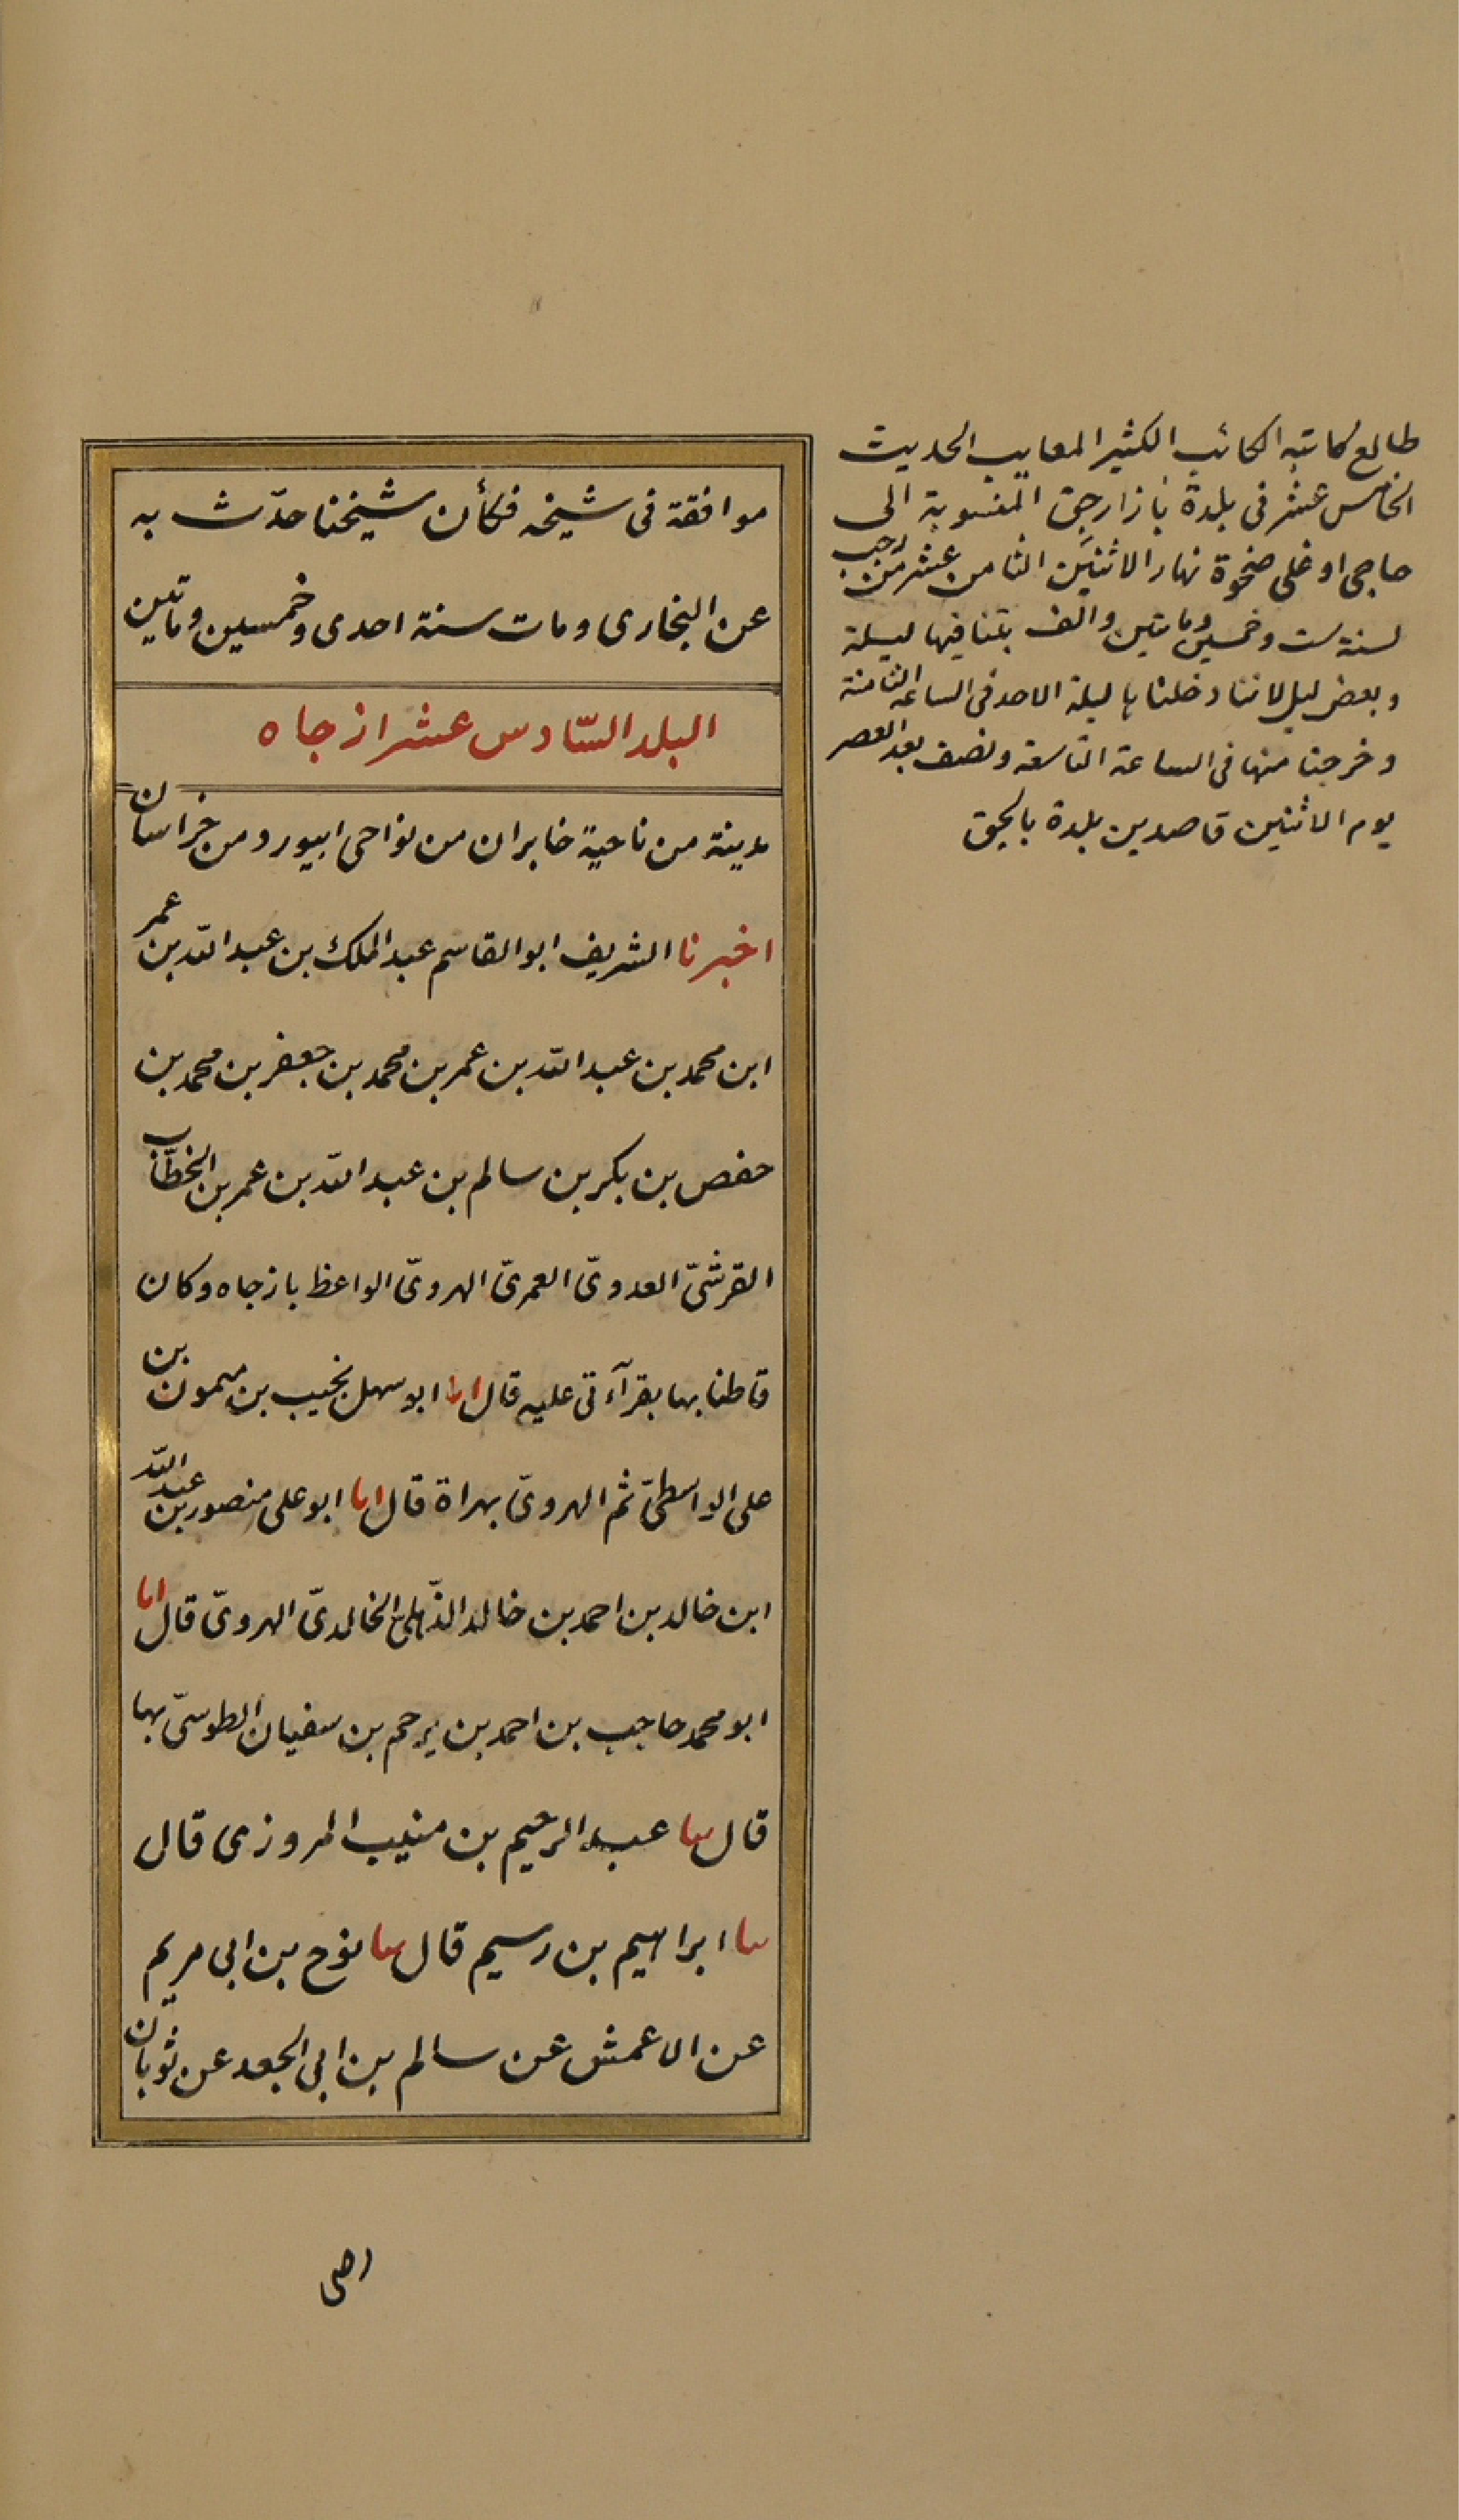 موافقة فى شيخه فكأن شيخنا حدّث به
عن البخارى ومات سنة احدى وخمسين وماتين
البلد السّادس عشر ازجاه
مدينة من ناحية خابران من نواحى ابيورد من خراسان
اخبرنا الشريف ابو القاسم عبد الملك بن عبد الله بن عمر
ابن محمد بن عبد الله بن عمر بن محمد بن جعفر بن محمد بن
حفص بن بكر بن سالم بن عبد الله بن عمر بن الخطّاب
القرشىّ العدوىّ العمرىّ الهروىّ الواعظ بازجاه وكان
قاطنا بها بقرآءتى عليه قال انا ابو سهل نجيب بن ميمون بن
على الواسطىّ ثم الهروىّ بهراة قال انا ابو على منصور بن عبد الله
ابن خالد بن احمد بن خالد الذّهلىّ الخالدىّ الهروىّ قال انا
ابو محمد حاجب بن احمد بن يرحم بن سفيان الطوسىّ بها
قال سا عبد الرحيم بن منيب المروزى قال
سا ابراهيم بن رسيم قال سا نوح بن ابى مريم
عن الاعمش عن سالم بن ابى الجعد عن ثوبان
طالع كاتبه الكثير المعايب الحديث
الخامس عشر فى بلدة بازارجق المنسوبة الى
حاجى اوغلى ضحوة نهار الاثنين الثامن عشر من رجب
لسنة ست وخمسين وماتين والف بتنا فيها ليلة
وبعض ليل لاننا دخلنا ها ليلة الاحد فى الساعة الثامنة
وخرجنا منها فى الساعة التاسعة ونصف بعد العصر
يوم الاثنين قاصدين بلدة بالجق